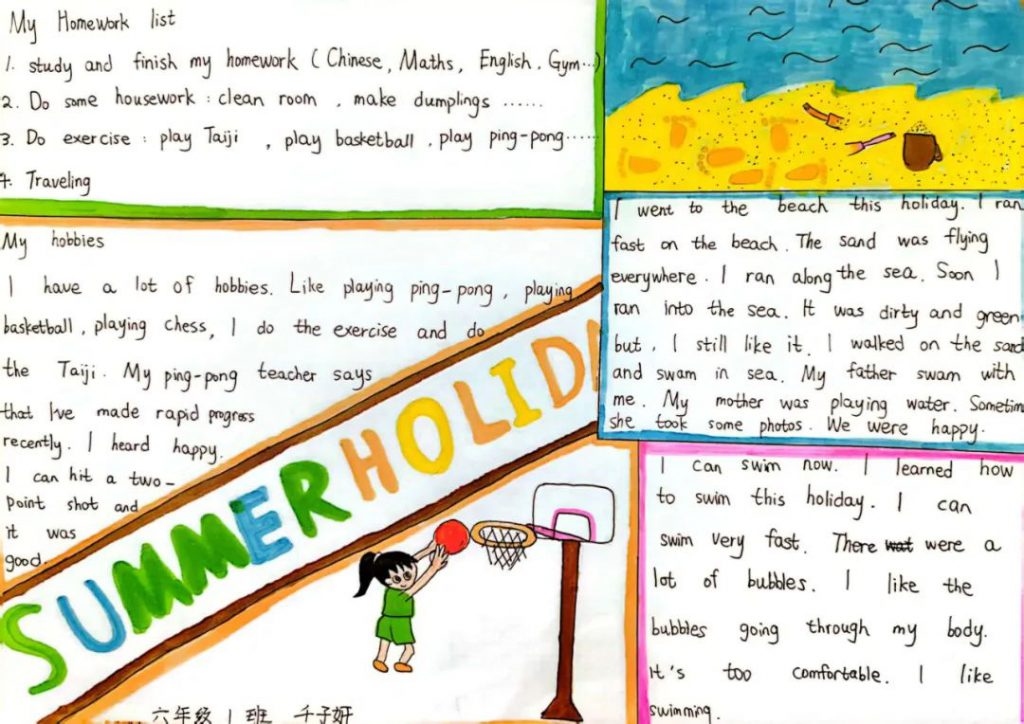 My Homework list
1. study and finish my homework ( Chinese, Maths, English, Gym...)
2. Do some housework : clean room , make dumplings ......
3. Do exercise : play Taiji , play basketball , play ping-pong......
4. Traveling
My hobbies
I have a lot of hobbies. Like playing ping-pong , playing
basketball , playing chess, I do the exercise and do
the Taiji. My ping-pong teacher says
that I've made rapid progress
recently. I heard happy.
I can hit a two-
point shot and
it was
good.
SUMMER HOLIDA
六年级 1 班 千子妍
I went to the beach this holiday. I ran
fast on the beach. The sand was flying
everywhere. I ran along the sea. Soon I
ran into the sea. It was dirty and green
but , I still like it. I walked on the sand
and swam in sea. My father swam with
me. My mother was playing water. Sometim
she took some photos. We were happy.
I can swim now. I learned how
to swim this holiday. I can
swim very fast. There wat were a
lot of bubbles. I like the
bubbles going through my body.
It's too comfortable. I like
swimming.